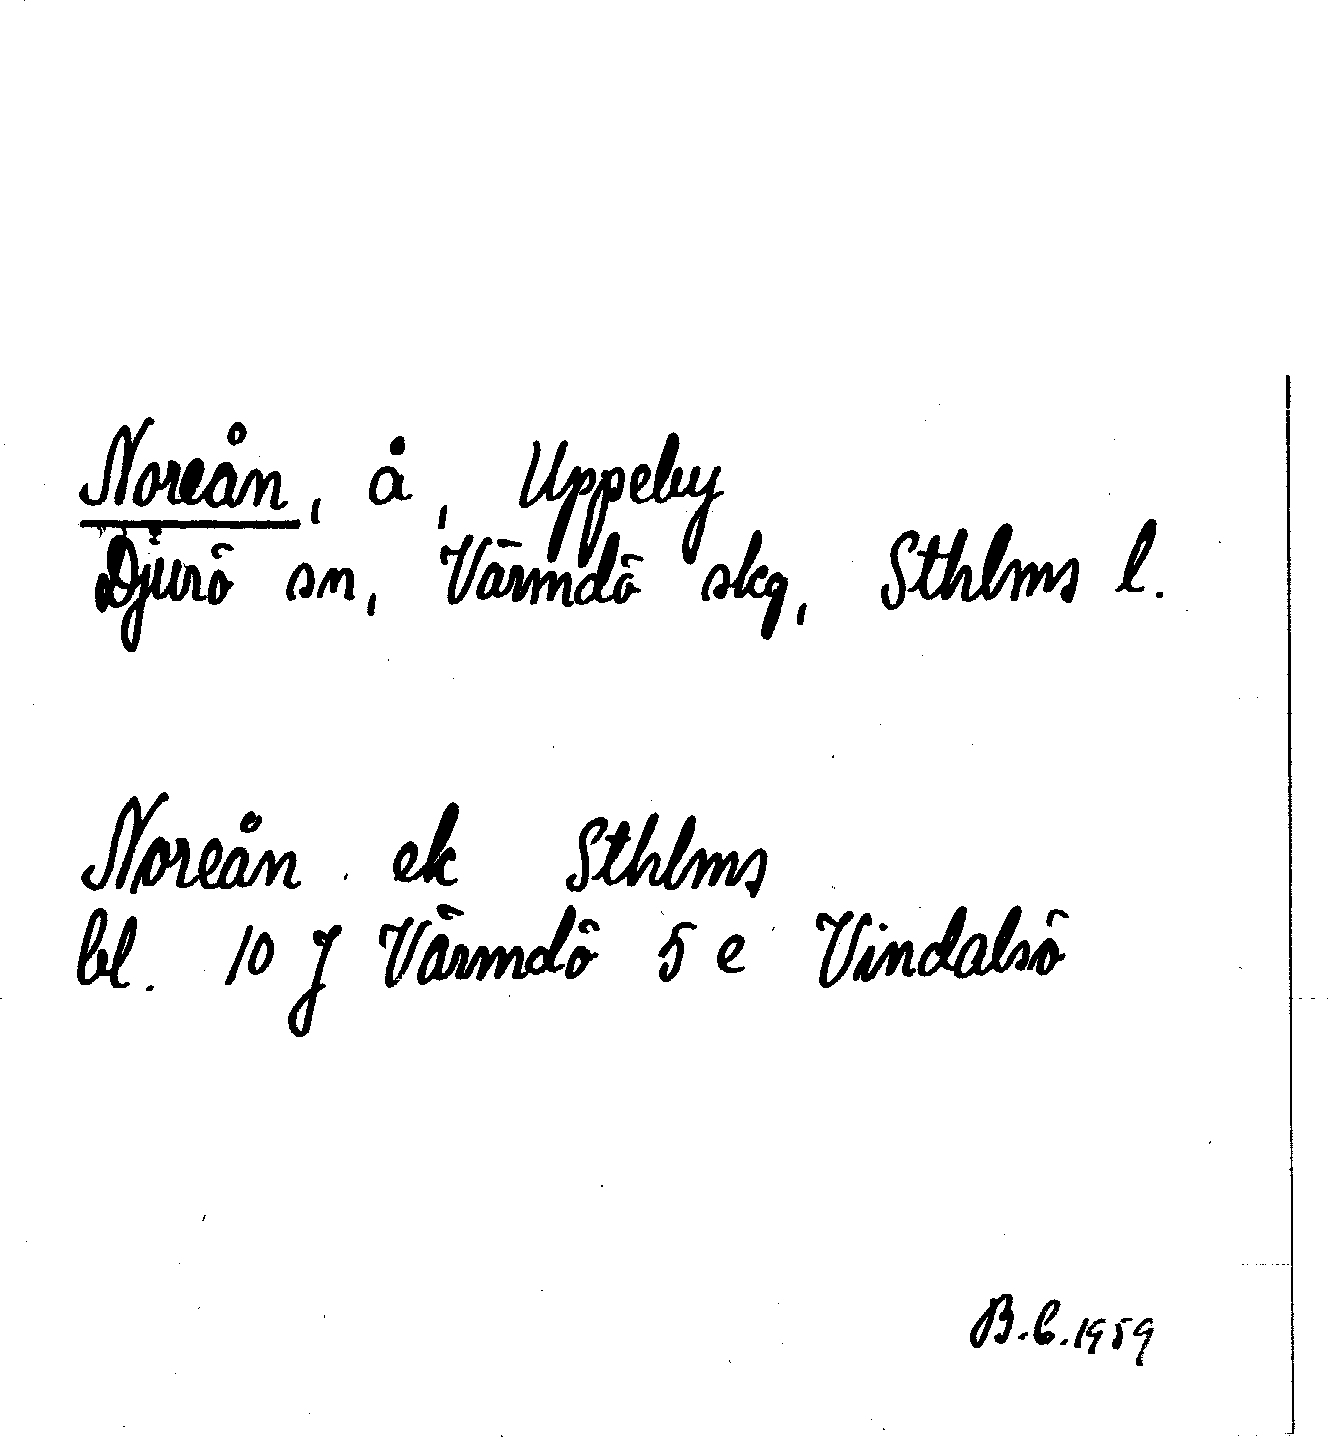 Noreån, å, Uppeby
Djurö sn, Värmdö skg, Sthlms l.
Noreån ek Sthlms
bl. 10 J Värmdö 5 e Vindalsö
B.C.1959